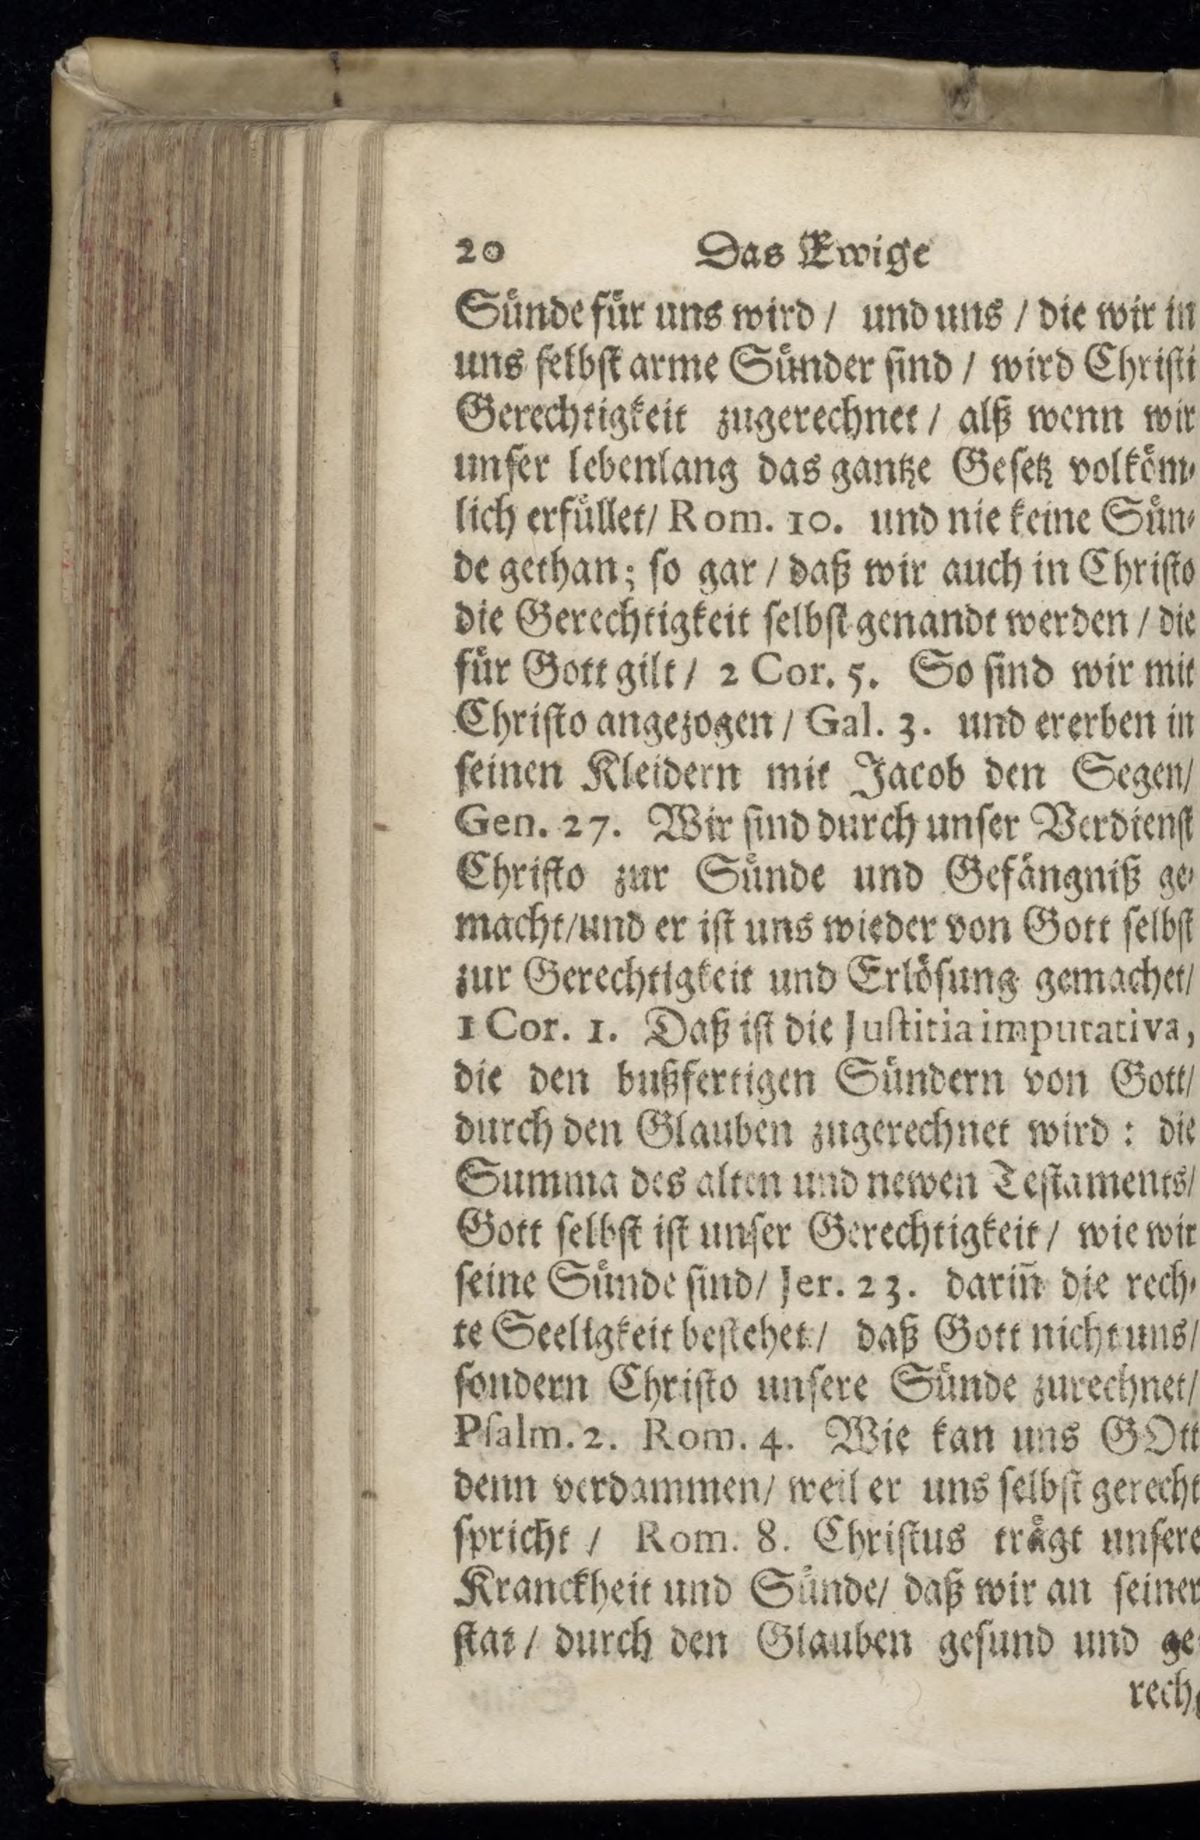 20 Das Ewige
Sünde für uns wird / und uns / die wir in
uns selbst arme Sünder sind / wird Christi
Gerechtigkeit zugerechnet / alß wenn wir
unser lebenlang das gantze Gesetz volköm-
lich erfüllet / Rom. 10. und nie keine Sün-
de gethan; so gar / daß wir auch in Christo
die Gerechtigkeit selbst genandt werden / die
für Gott gilt / 2 Cor. 5. So sind wir mit
Christo angezogen / Gal. 3. und ererben in
seinen Kleidern mit Jacob den Segen /
Gen. 27. Wir sind durch unser Verdienst
Christo zur Sünde und Gefängniß ge-
macht / und er ist uns wieder von Gott selbst
zur Gerechtigkeit und Erlösung gemachet /
1 Cor. 1. Daß ist die Justitia imputativa,
die den bußfertigen Sündern von Gott /
durch den Glauben zugerechnet wird : die
Summa des alten und newen Testaments /
Gott selbst ist unser Gerechtigkeit / wie wir
seine Sünde sind / Jer. 23. dariñ die rech-
te Seeligkeit bestehet / daß Gott nicht uns /
sondern Christo unsere Sünde zurechnet /
Psalm. 2. Rom. 4. Wie kan uns GOtt
denn verdammen / weil er uns selbst gerecht
spricht / Rom. 8. Christus trägt unsere
Kranckheit und Sünde / daß wir an seiner
stat / durch den Glauben gesund und ge-
rech-